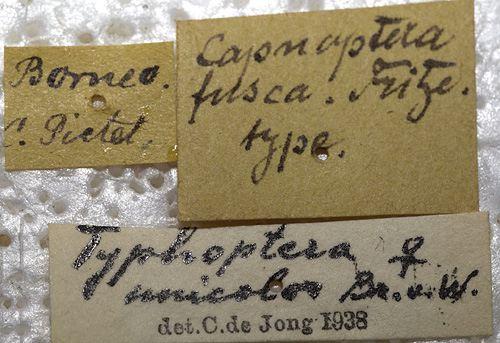 Borneo.
C. Pictet,
Capnoptera
fusca. Fritze.
type.
Typhoptera ♀
unicolor Br. v. W.
det. C. de Jong 1938